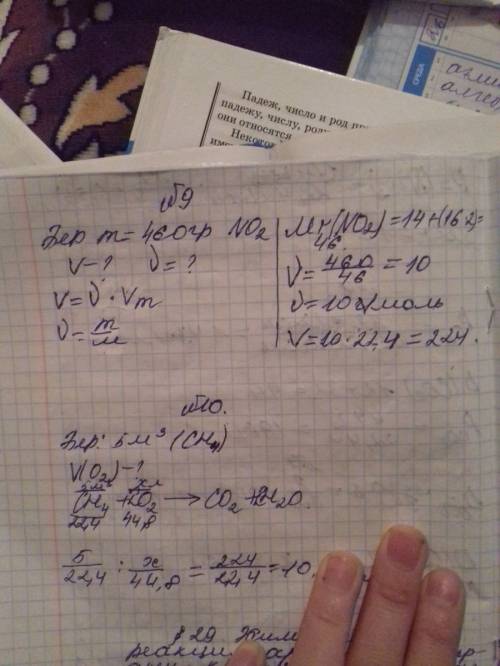 Падеж, число и род
падежу, числу,
они относятся
СРЕДА
№9
Бер m = 460гр NO2
V-? ν = ?
V = ν · Vm
ν = m/M
Mr(NO2) = 14+(16·2)=
46
ν = 460/46 = 10
ν = 10 моль
V = 10 · 22,4 = 224.
№10.
Бер: 5 м³ (CH4)
V(O2)-?
CH4 + 2O2 → CO2 + 2H2O.
22,4 44,8
5/22,4 : x/44,8 = 224/22,4 = 10,
§ 29